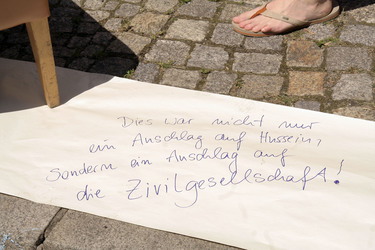 Dies war nicht nur
ein Anschlag auf Hussein,
sondern ein Anschlag auf
die Zivilgesellschaft!